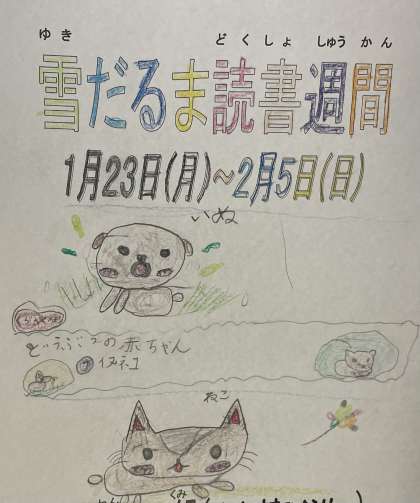 ゆき どくしょ しゅうかん
雪だるま読書週間
1月23日(月)~2月5日(日)
いぬ
どうぶつの赤ちゃん
イヌネコ
ねこ
くみ